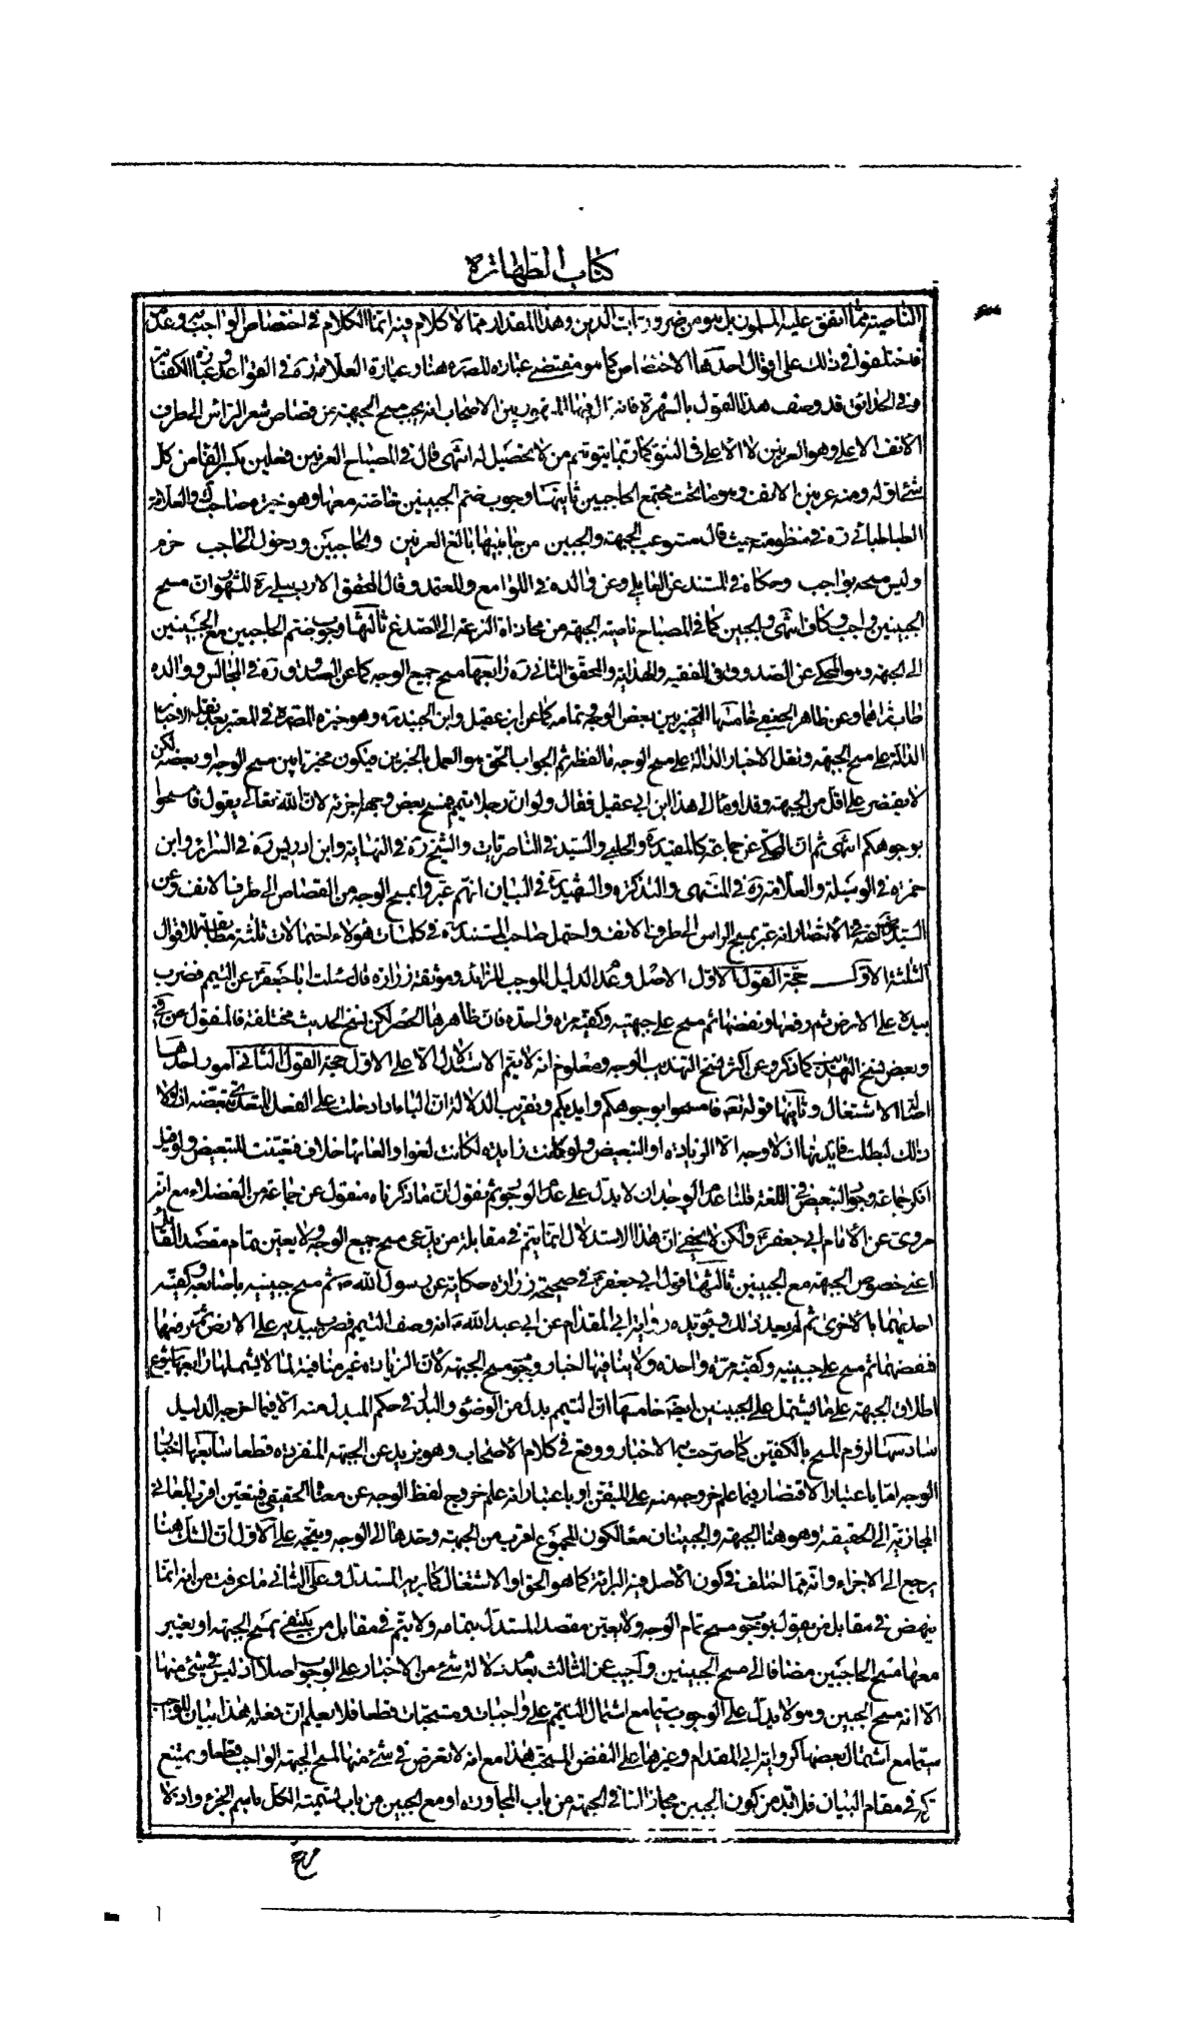 كتاب الطهارة
الناصية مما اتفق عليه المسلمون بل هو من ضروريات الدين وهذا المقدار مما لا كلام فيه انما الكلام في اختصاص الواجب به وعدمه
فاختلفوا في ذلك على اقوال احدها الاختصاص كما هو مقتضى عبارة المصره هنا وعبارة العلامة ره في القواعد
وفي الحدائق قد وصف هذا القول بالشهرة فانه قال فيها المشهور بين الاصحاب انه يجب مسح الجبهة من قصاص شعر الراس الى طرف
الانف الاعلى وهو العرنين لا الاعلى في النتو كما ربما يتوهم من لا تحصيل له انتهى قال في المصباح العرنين فعلين بكسر الفا من كل
شئ اوله ومنه عرنين الانف وهو ما تحت مجتمع الحاجبين ثانيها وجوب ضم الجبينين خاصة معها وهو خيرة صاحب ك والعلامة
الطباطبائي ره في منظومته حيث قال مستوعب الجبهة والجبين من جانبيها بالغ العرنين والحاجبين ودخول الحاجب حزم
وليس مسحه بواجب وحكاه في المستند عن العاملي وعن والده في اللوامع والمعتمد وقال المحقق الاردبيلي ره المشهور ان مسح
الجبينين واجب وكاف انتهى والجبين كما في المصباح ناحية الجبهة من محاذاة النزعة الى الصدغ ثالثها وجوب ضم الحاجبين مع الجبينين
الى الجبهة وهو المحكي عن الصدوق في الفقيه والهداية والمحقق الثاني ره رابعها مسح جميع الوجه كما عن الصدوق ره في المجالس ووالده
طاب ثراهما وعن ظاهر الجعفي خامسها التخيير بين بعض الوجه وتمامه كما عن ابن عقيل وابن الجنيد ره وهو خيرة المصره في المعتبر بعد نقله الاخبار
الدالة على مسح الجبهة ونقل الاخبار الدالة على مسح الوجه ما لفظه ثم الجواب الحق هو العمل بالخبرين فيكون مخيرا بين مسح الوجه او بعضه لكن
لا يقتصر على اقل من الجبهة وقد اومأ الى هذا ابن ابي عقيل فقال ولو ان رجلا تيمم فمسح بعض وجهه اجزئه لان الله تعالى يقول فامسحوا
بوجوهكم انتهى ثم ان المحكي عن جماعة كالمفيد ره والحلبي والسيد في الناصريات والشيخ ره في النهاية وابن ادريس ره في السرائر وابن
حمزه في الوسيلة والعلامة ره في المنتهى والتذكرة والشهيد ره في البيان انهم عبروا بمسح الوجه من القصاص الى طرف الانف وعن
السيد في الانتصار انه عبر بمسح الراس الى طرف الانف واحتمل صاحب المستند ره في كلمات هؤلاء احتمالات ثلثة للاقوال
الثلثة الاول حجة القول الاول الاصل وعدم الدليل الموجب للزائد وموثقة زرارة قال سئلت ابا جعفر ع عن التيمم فضرب
بيده على الارض ثم رفعها ونفضها ثم مسح على جبهته وكفيه مرة واحدة فان ظاهرها الحصر لكن نسخ الحديث مختلفة فالمنقول عن
وبعض نسخ التهذيب كما ذكر وعن اكثر نسخ التهذيب الوجه ومعلوم انه لا يتم الاستدلال الا على الاول حجة القول الثاني امور احدها
اصالة الاشتغال وثانيها قوله تعه فامسحوا بوجوهكم وايديكم وتقريب الدلالة ان الباء اذا دخلت على الفعل المتعدي بعضه اذ لولا
ذلك لبطلت فايدتها اذ لا وجه الا الزيادة او التبعيض ولو كانت زايدة لكانت لغوا والغائها خلاف فتعينت للتبعيض ولو قيل
انكر جماعة وجود التبعيض في اللغة قلنا عدم الوجدان لا يدل على عدم الوجود ثم نقول ان ما ذكرناه منقول عن جماعة من الفضلاء مع انه
مروى عن الامام ابي جعفر ع ولكن لا يخفى ان هذا الاستدلال انما يتم في مقابلة من يدعى مسح جميع الوجه ولا يعين تمام مقصد القائل
اعنى خصوص الجبهة مع الجبينين ثالثها قول ابي جعفر ع في صحيحة زرارة حكاية عن رسول الله ص ثم مسح جبينيه باصابعه وكفيه
احديهما بالاخرى ثم لم يعد ذلك ويؤيده رواية ابي المقدام عن ابي عبد الله ع انه وصف التيمم فضرب بيديه على الارض ثم رفعها
فنفضهما ثم مسح على جبينيه وكفيه مرة واحدة ولا ينافيها اخبار وجوب مسح الجبهة لان الزيادة غير منافية لما لا يشملها رابعها شيوع
اطلاق الجبهة على ما يشتمل على الجبينين ايضا خامسها ان التيمم بدل من الوضوء والبدل في حكم المبدل منه الا فيما اخرجه الدليل
سادسها لزوم المسح بالكفين كما صرحت بها الاخبار ووقع في كلام الاصحاب وهو يزيد عن الجبهة المنفردة قطعا سابعها اخبار
الوجه اما باعتبار الاقتصار فيما علم خروجه منه على المتيقن او باعتبار انه علم خروج لفظ الوجه عن معناه الحقيقي فيتعين اقرب المعاني
المجازية الى الحقيقة وهو هنا الجبهة والجبينان معا لكون المجموع اقرب من الجبهة وحدها الى الوجه ويتجه على الاول ان الشك هنا
يرجع الى الاجزاء وانه مما اختلف في كون الاصل فيه البرائة كما هو الحق او الاشتغال كما يريد المستدل وعلى الثاني ما عرفت من انه انما
ينهض في مقابل من يقول بوجوب مسح تمام الوجه ولا يعين مقصد المستدل بتمامه ولا يتم في مقابل من يكتفي بمسح الجبهة او يعتبر
معها مسح الحاجبين مضافا الى مسح الجبينين واجيب عن الثالث بعدم دلالة شئ من الاخبار على الوجوب اصلا اذ ليس في شئ منها
الا انه مسح الجبين وهو لا يدل على الوجوب سيما مع اشتمال التيمم على واجبات ومستحبات قطعا فلا يعلم ان فعله هذا بيان للواجب
سيما مع اشتمال بعضها كرواية ابي المقدام وغيرها على النفض المستحب هذا مع انه لا تعرض في شئ منها لمسح الجبهة الواجب قطعا ويمتنع
تركه في مقام البيان فلا بد من كون الجبين مجازا اما في الجبهة من باب المجاورة او مع الجبين من باب تسمية الكل باسم الجزء واذ لا